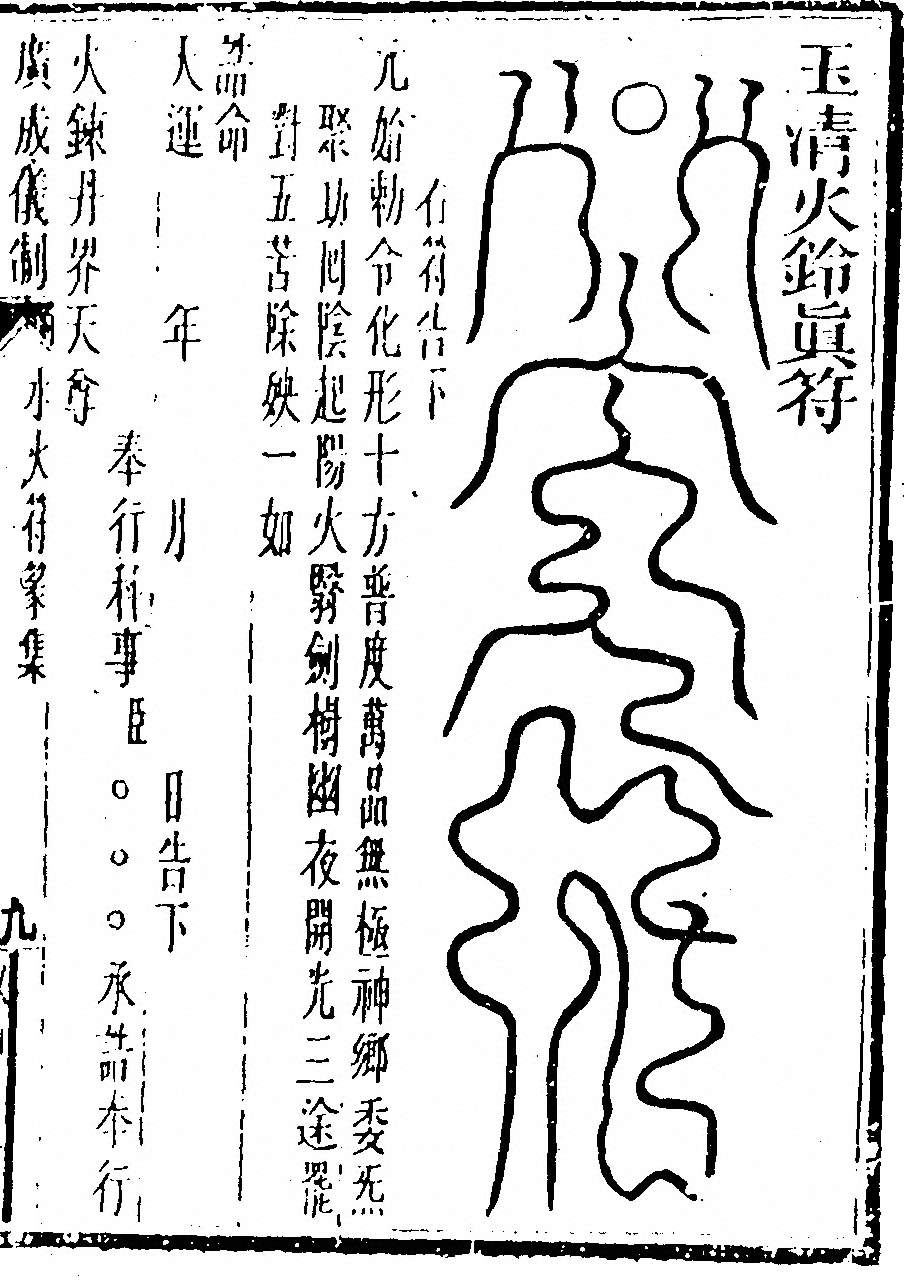 玉清火鈴眞符
右符告下
元始勅令化形十方普度萬品無極神鄉委炁
聚功囬陰起陽火翳劍樹幽夜開光三途罷
對五苦除殃一如
誥命
天運 年 月 日告下
奉行科事臣○○○承誥奉行
火鍊丹界天尊
廣成儀制 水火符篆集
九